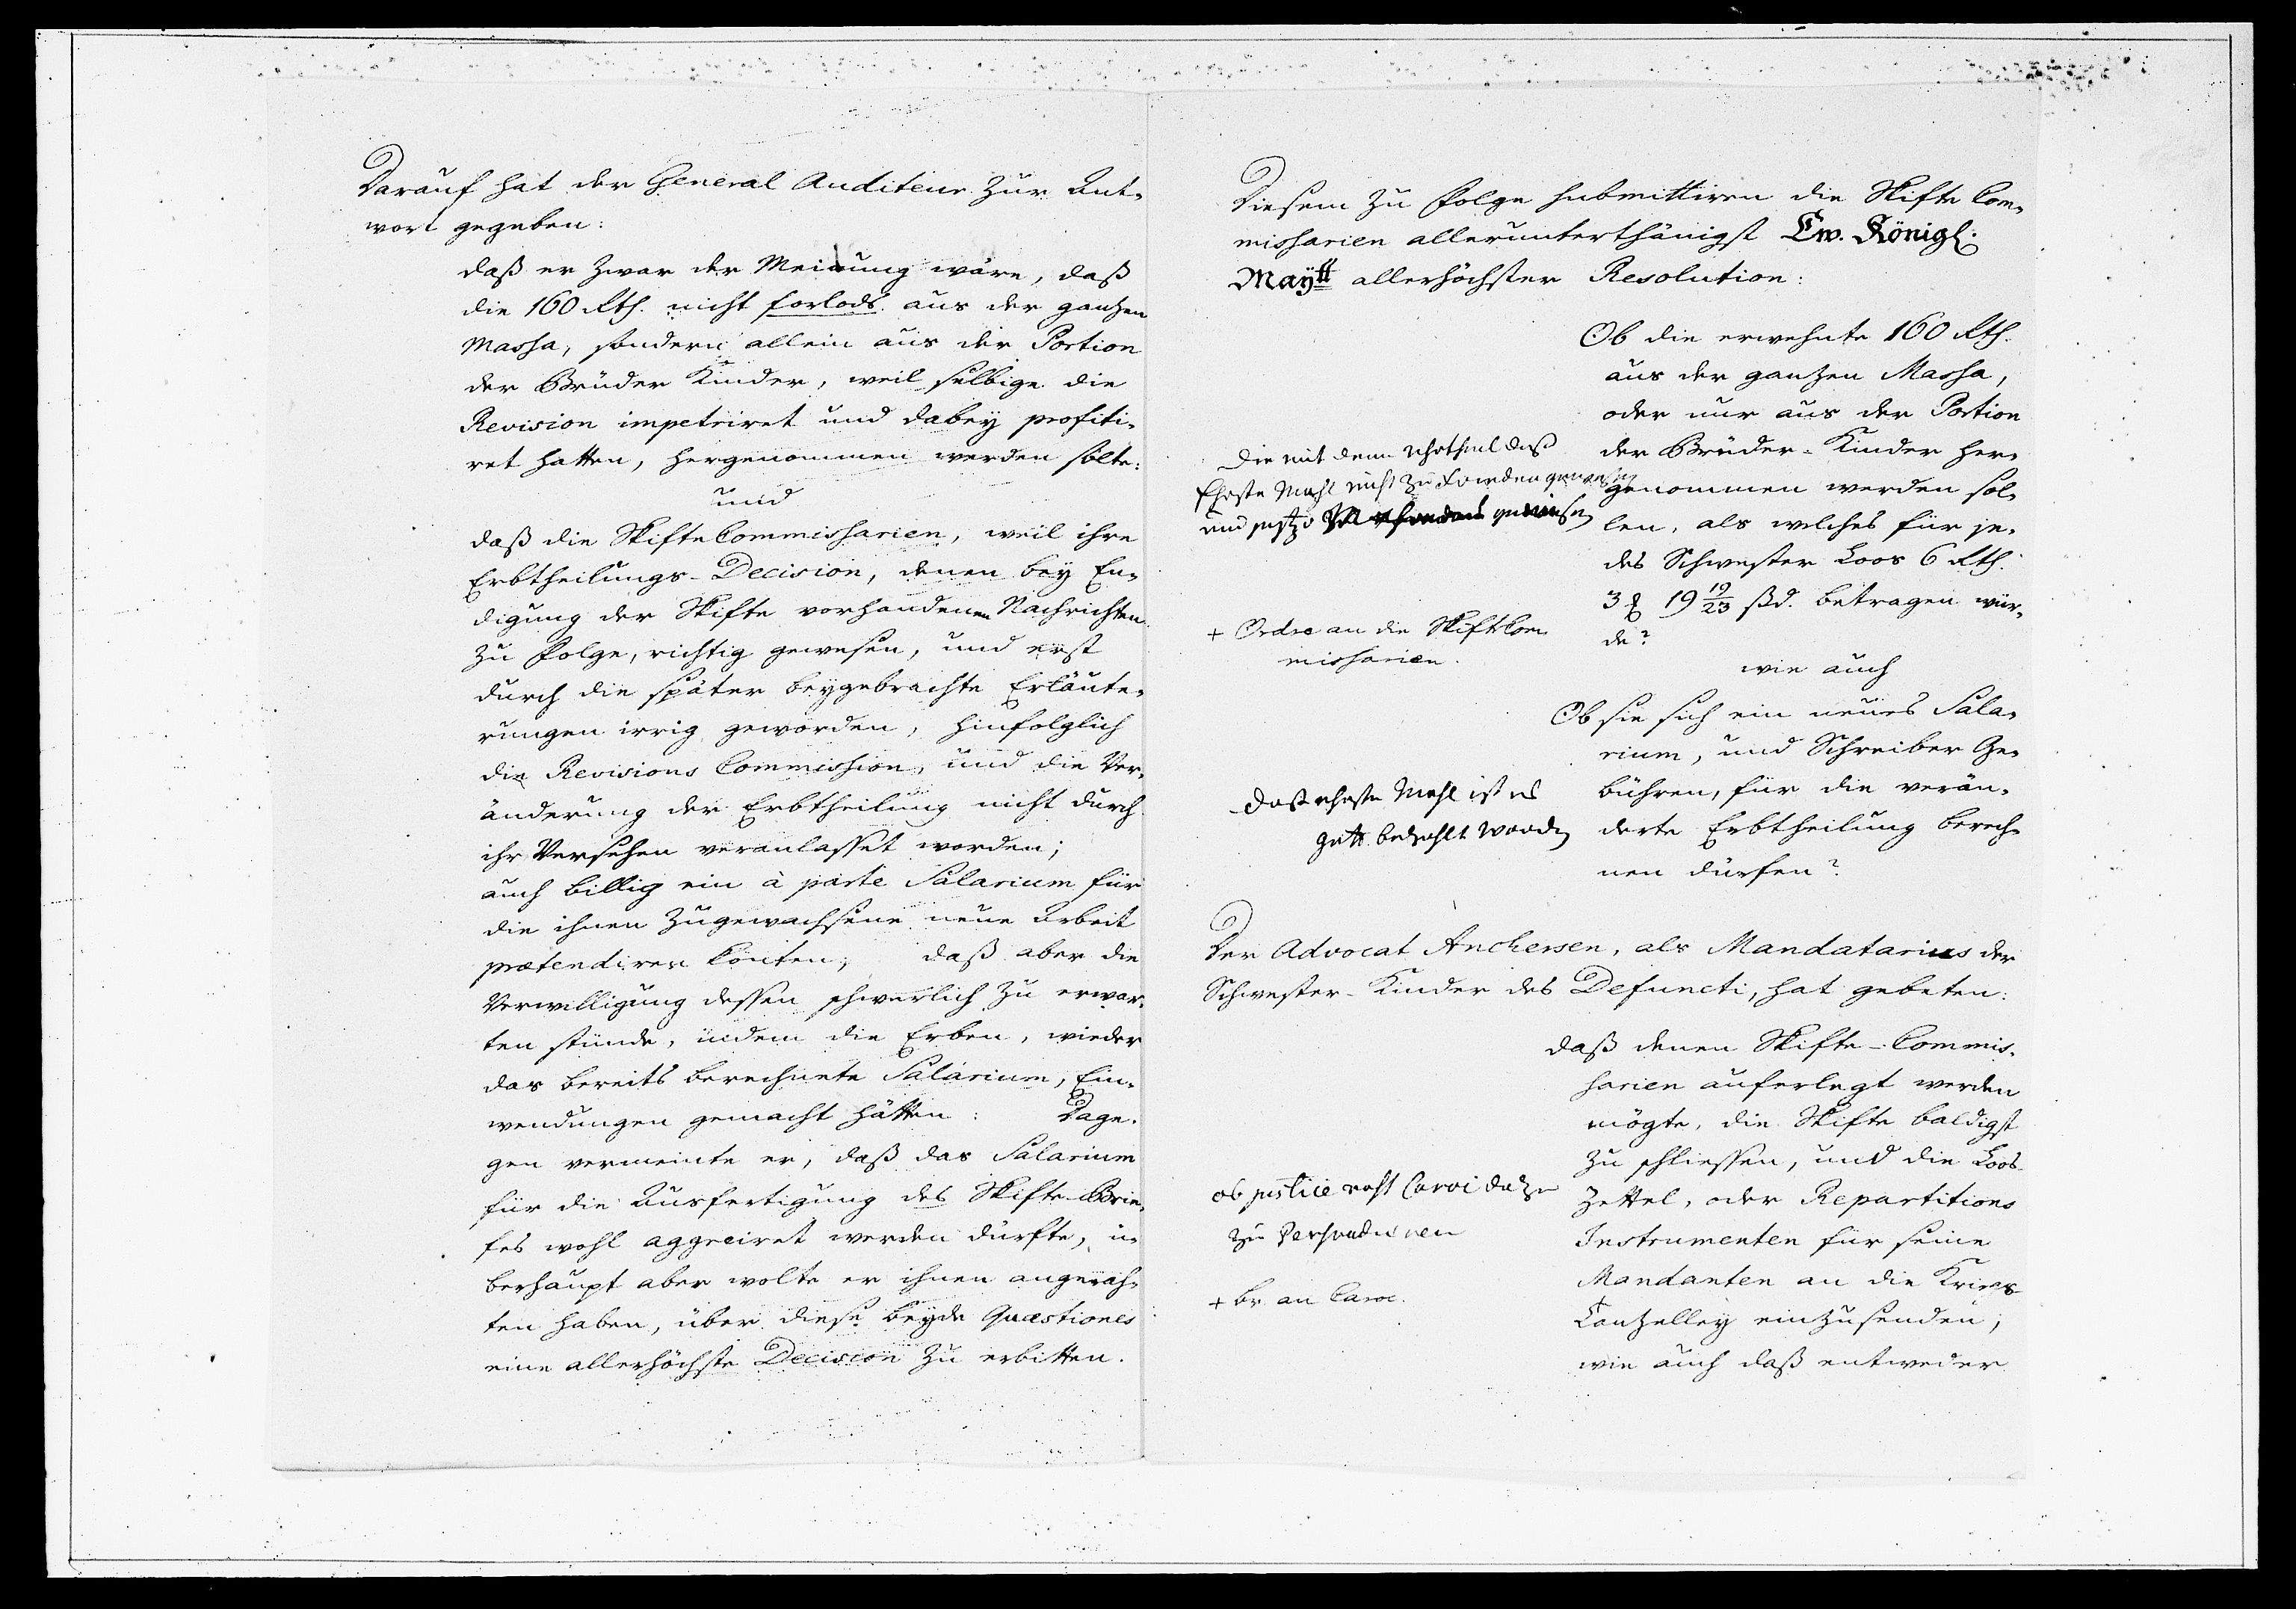 Darauf hat der General Auditeur zur Ant-
wort gegeben:
daß er zwar der Meinung wäre, daß
die 160 Rth. nicht forlods aus der gantzen
Massa, sondern allein aus der Portion
der Brüder Kinder, weil selbige die
Revision impetriret und dabey profiti-
ret hatten, hergenommen werden solte:
und
daß die Skifte Commissarien, weil ihre
Erbtheilungs-Decision, denen bey En-
digung der Skifte vorhandenen Nachrichten
zu Folge, richtig gewesen, und erst
durch die später beygebrachte Erläute-
rungen irrig geworden, hinfolglich
die Revisions Commission, und die Ver-
änderung der Erbtheilung nicht durch
ihr Versehen veranlasset worden;
auch billig ein à parte Salarium für
die ihnen zugewachsene neue Arbeit
prætendiren könten, daß aber die
Verwilligung dessen schwerlich zu erwar-
ten stünde, indem die Erben, wieder
das bereits berechnete Salarium, Ein-
wendungen gemacht hätten: Dage-
gen vermeinte er, daß das Salarium
für die Ausfertigung des Skifte-Brie-
fes wohl aggreiret werden dürfte, ü-
berhaupt aber wolte er ihnen angerah-
ten haben, über diese beyde Quæstiones
eine allerhöchste Decision zu erbitten.
Diesem zu Folge submittiren die Skifte Com-
missarien allerunterthänigst Ew. Königl.
Maytt allerhöchster Resolution:
Ob die erwehnte 160 Rth.
aus der gantzen Massa,
oder nur aus der Portion
der Brüder-Kinder her-
genommen werden sol-
len, als welches für je-
des Schwester Loos 6 Rth.
3 ꝭ 19 19/23 ßd. betragen wür-
de?
wie auch
Ob sie sich ein neues Sala-
rium, und Schreiber Ge-
bühren, für die verän-
derte Erbtheilung berech-
nen dürfen?
Die mit dem daß
Mahl nicht zu frieden gewesen
und
+ Ordre an die Skifte Com-
missarien.
Daß erste Mahl ist es
gutt bezahlt worden
Der Advocat Anchersen, als Mandatarius der
Schwester-Kinder des Defuncti, hat gebeten:
daß denen Skifte-Commis-
sarien auferlegt werden
mögte, die Skifte baldigst
zu schliessen, und die Loos-
Zettel, oder Repartitions
Instrumenten für seine
Mandanten an die Krieges-
Cantzelley einzusenden;
wie auch daß entweder
ob justice raht Caroc dazu
zu
+ Br. an Caroc.